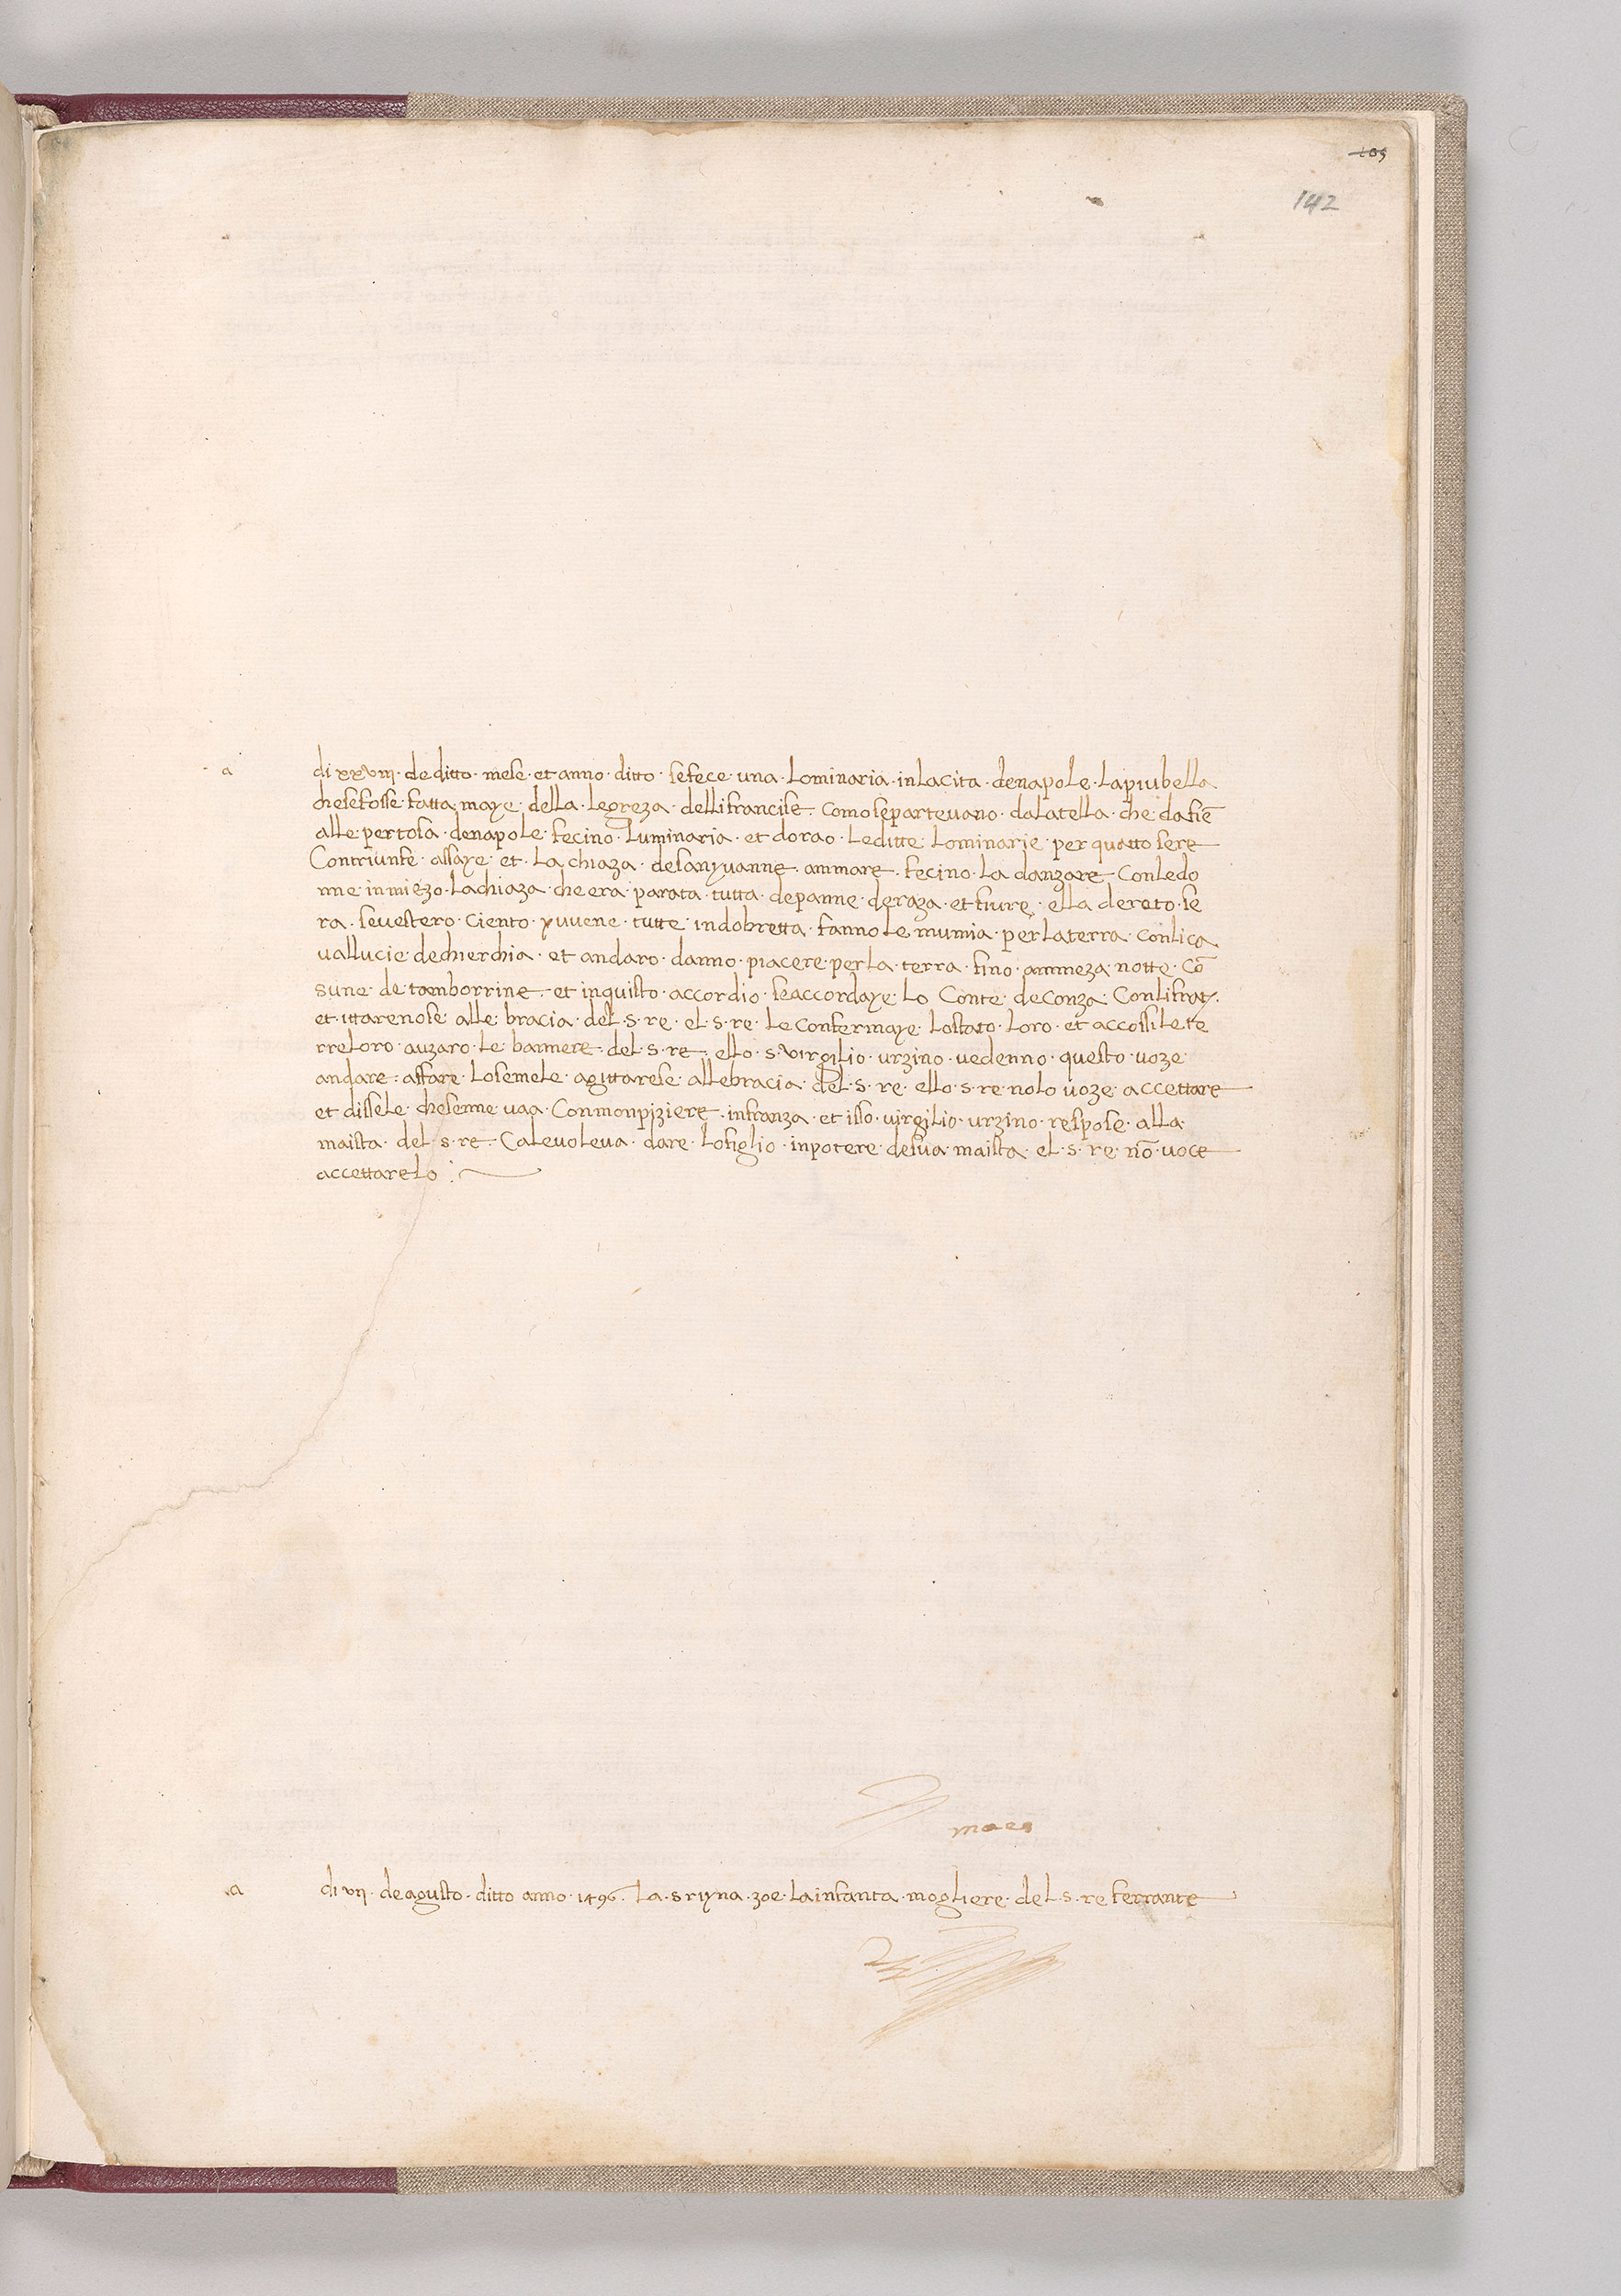 109
142
a di xxviii · de ditto · mese · et anno · ditto · sefece · una · Lominaria · inLacita · denapole · Lapiubella
chesefosse · fatta · maye · della · Legreza · dellifrancise · Comosepartevano · daLatella · che dafiē
alle · pertosa · denapole · fecino · Luminaria · et dorao · Leditte · Lominarie · per quatto sere
Contriunfe · assaye · et · La chiaza · desanyuanne · ammare · fecino · La danzare · Conledo
nne inmiezo · Lachiaza · che era · parata · tutta · depanne · deraza · etfiure · ella dereto · se
ra · sevestero · Ciento · yuvene · tutte · indobretta · fanno Le mumia · perlaterra · conlica
vallucie dechierchia · et andaro · danno · piacere · perLa · terra · fino · ammeza notte · Cō
sune · de tamborrine · et inquisto · accordio · seaccordaye · Lo Conte · deConza · Conlifraty ·
et · ittarenose alle · bracia · del · s · re · el · s · re · Le Confermaye · Lostato · Loro · et accossiLete
rreloro · auzaro · Le bannere · del · s · re · ello · s · virgilio · urzino · vedenno · questo · voze
andare · affare · Losemele · agittarese · allebracia · del · s · re · ello · s · re · nolo voze · accettare
et dissele · chesenne vaa · Conmonpiziere · infranza · et isso · virgilio · urzino · respose · alla
maista · del · s · re · Calevoleva · dare · Lofiglio · inpotere · desua · maista · el · s · re · nō · voce
accettareLo :
maes
a di vii · deagusto · ditto anno · 1496 · La · s riyna · zoe · Lainfanta · mogliere · del · s · re ferrante